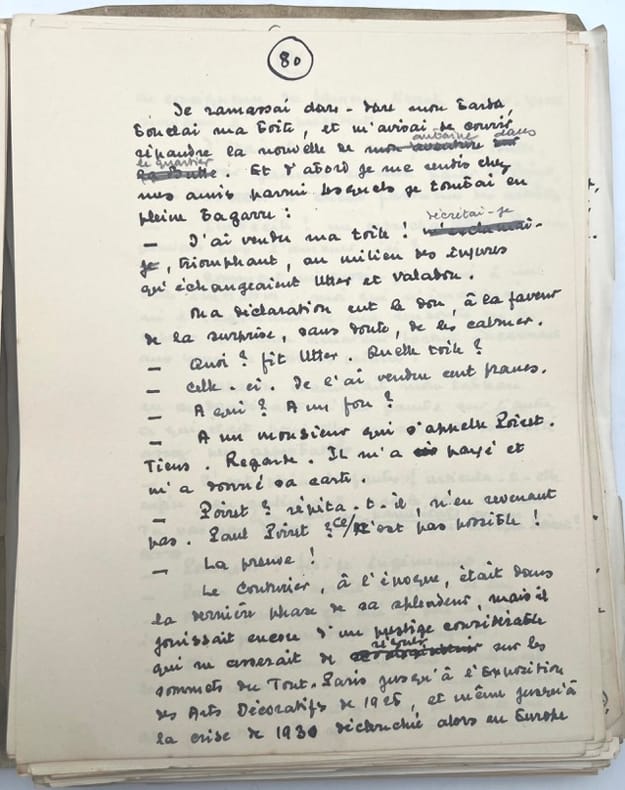 80
Je ramassai dare-dare mon barda,
bouclai ma boîte, et m'avisai de courir
antoine dans
répandre la nouvelle de mon aventure sur
le quartier
la Butte. Et d'abord je me rendis chez
mes amis parmi lesquels je tombai en
pleine bagarre :
décrétai-je
— J'ai vendu ma toile ! m'exclamai-
je, triomphant, au milieu des injures
qu'échangeaient Utter et Valadon.
Ma déclaration eut le don, à la faveur
de la surprise, sans doute, de les calmer.
— Quoi ? fit Utter. Quelle toile ?
— Celle-ci. Je l'ai vendue cent francs.
— A qui ? A un fou ?
— A un monsieur qui s'appelle Poiret.
Tiens. Regarde. Il m'a payé et
m'a donné sa carte.
— Poiret ? répéta-t-il, n'en revenant
pas. Paul Poiret ? Ce/ n'est pas possible !
— La preuve !
Le couturier, à l'époque, était dans
la dernière phase de sa splendeur, mais il
jouissait encore d'un prestige considérable
régner
qui ne cesserait de sur les
sommets du Tout-Paris jusqu'à l'Exposition
des Arts Décoratifs de 1925, et même jusqu'à
la crise de 1930 déclenchée alors en Europe